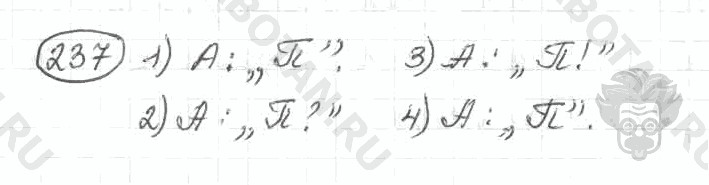 237 1) А: „П”. 3) А: „П!”
2) А: „П?” 4) А: „П”.